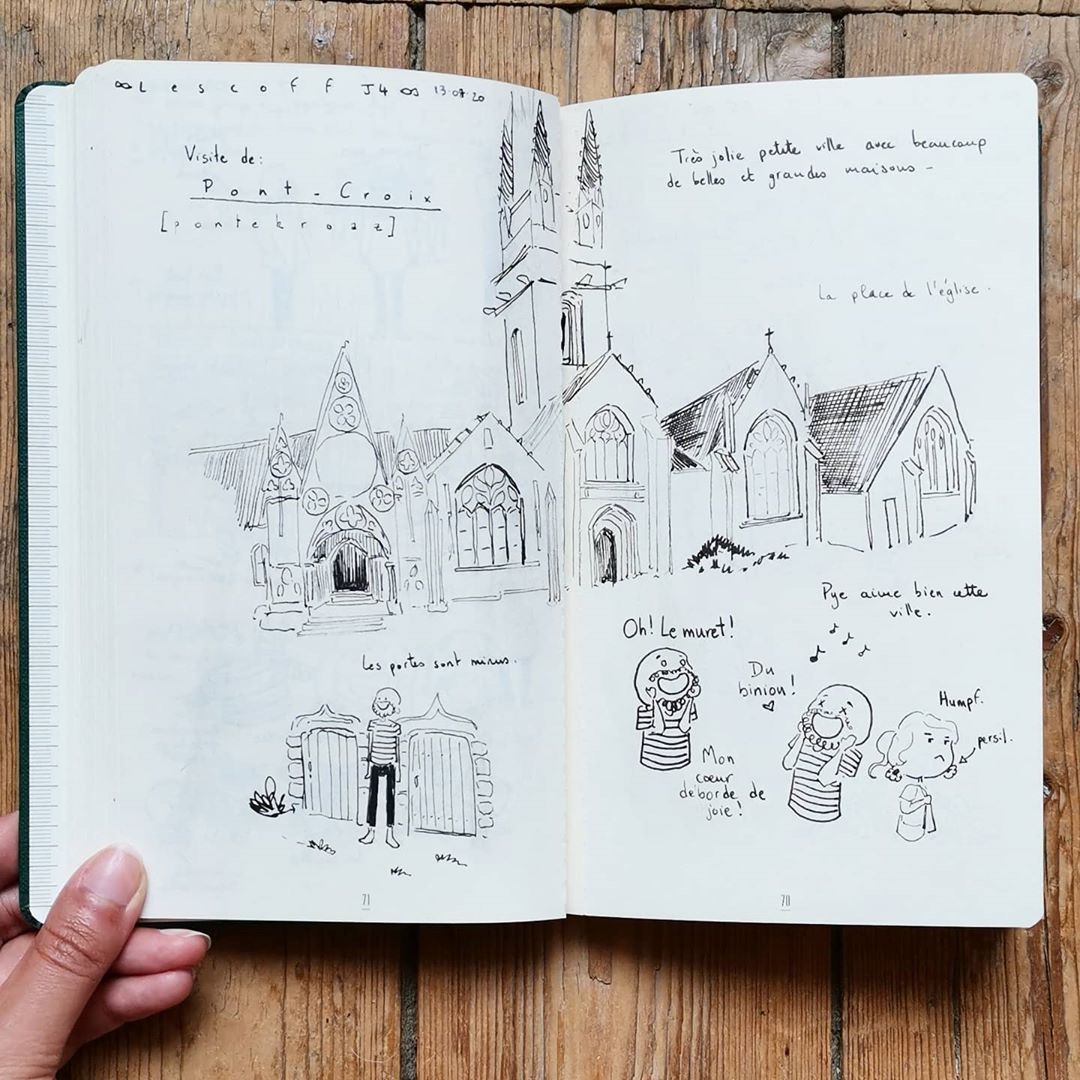 ∞ Lescoff J4 ∞ 13.07.20
Visite de:
Pont-Croix
[pontekroaz]
Les portes sont minus.
71
Très jolie petite ville avec beaucoup
de belles et grandes maisons -
La place de l'église.
Pye aime bien cette
ville.
Oh! Le muret!
Du
biniou!
♡
Mon
coeur
déborde de
joie!
Humpf.
persil.
70